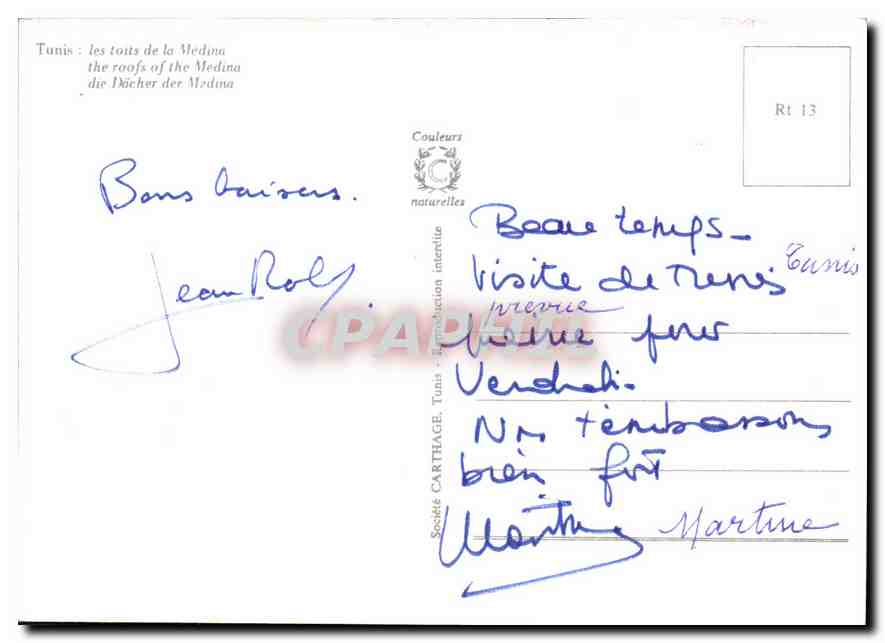 Tunis : les toits de la Médina
the roofs of the Medina
die Dächer der Medina
Rt 13
Couleurs
C
naturelles
Bons baisers.
Jean Rolf
Société CARTHAGE, Tunis - Reproduction interdite
Beau temps -
Visite de Tunis Tunis
prevue
prévue pour
Vendredi.
Ns t'embrassons
bien fort
Martine Martine
CPAPHIL